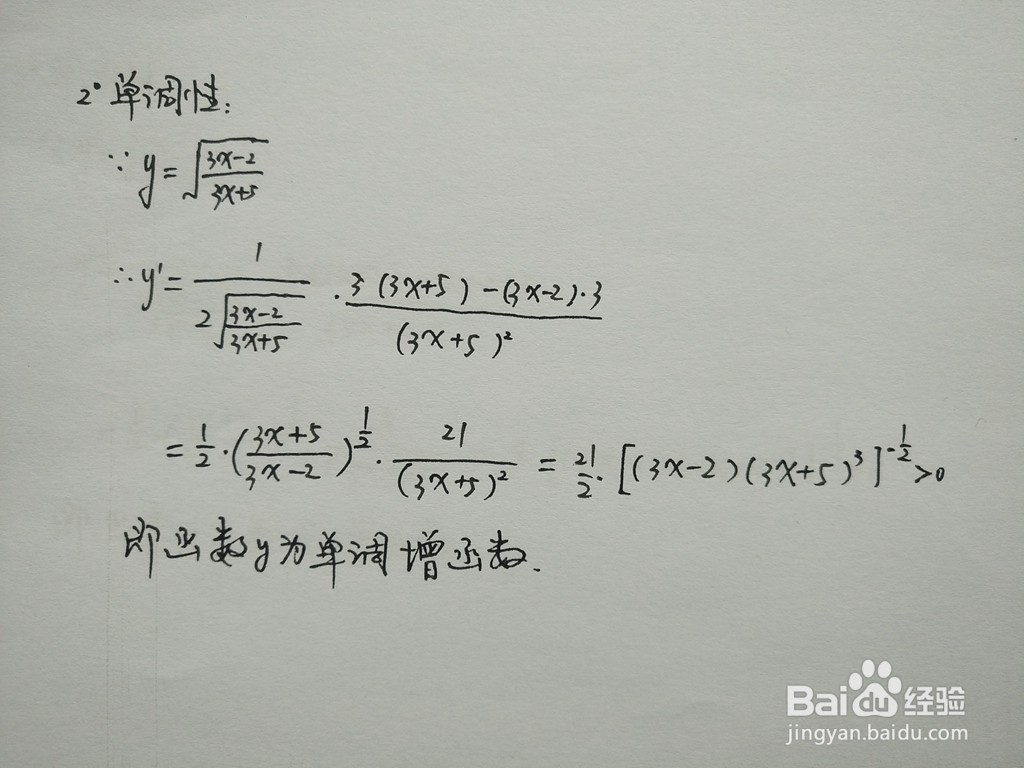 2° 单调性:
∵ y = √((3x-2)/(3x+5))
∴ y' = 1/(2√((3x-2)/(3x+5))) · (3(3x+5)-(3x-2)·3)/(3x+5)²
= 1/2·((3x+5)/(3x-2))^(1/2) · 21/(3x+5)² = 21/2·[(3x-2)(3x+5)³]^(-1/2) >0
即函数y为单调增函数.
Baidu经验
jingyan.baidu.com